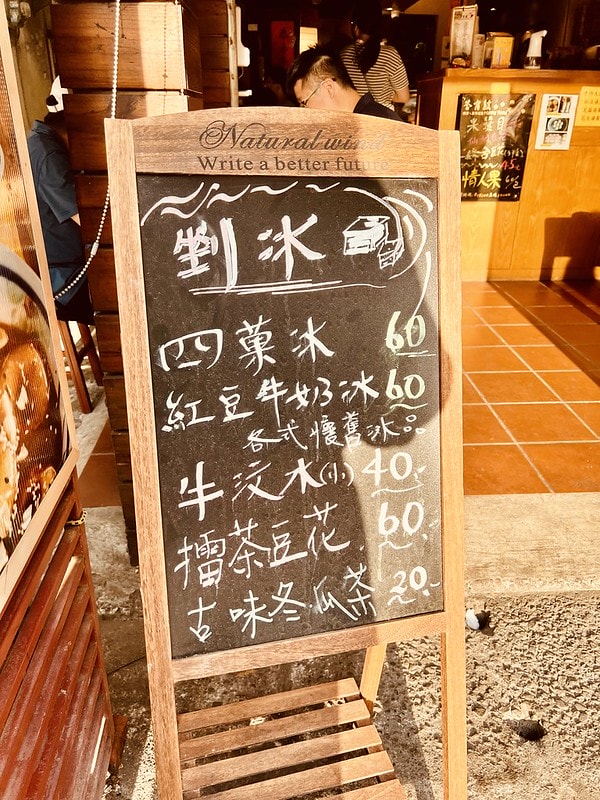 Natural wind
Write a better future
剉冰
四菓冰 60
紅豆牛奶冰 60
各式懷舊冰品
牛汶水(小) 40.-
擂茶豆花 60.-
古味冬瓜茶 20.-
情人果